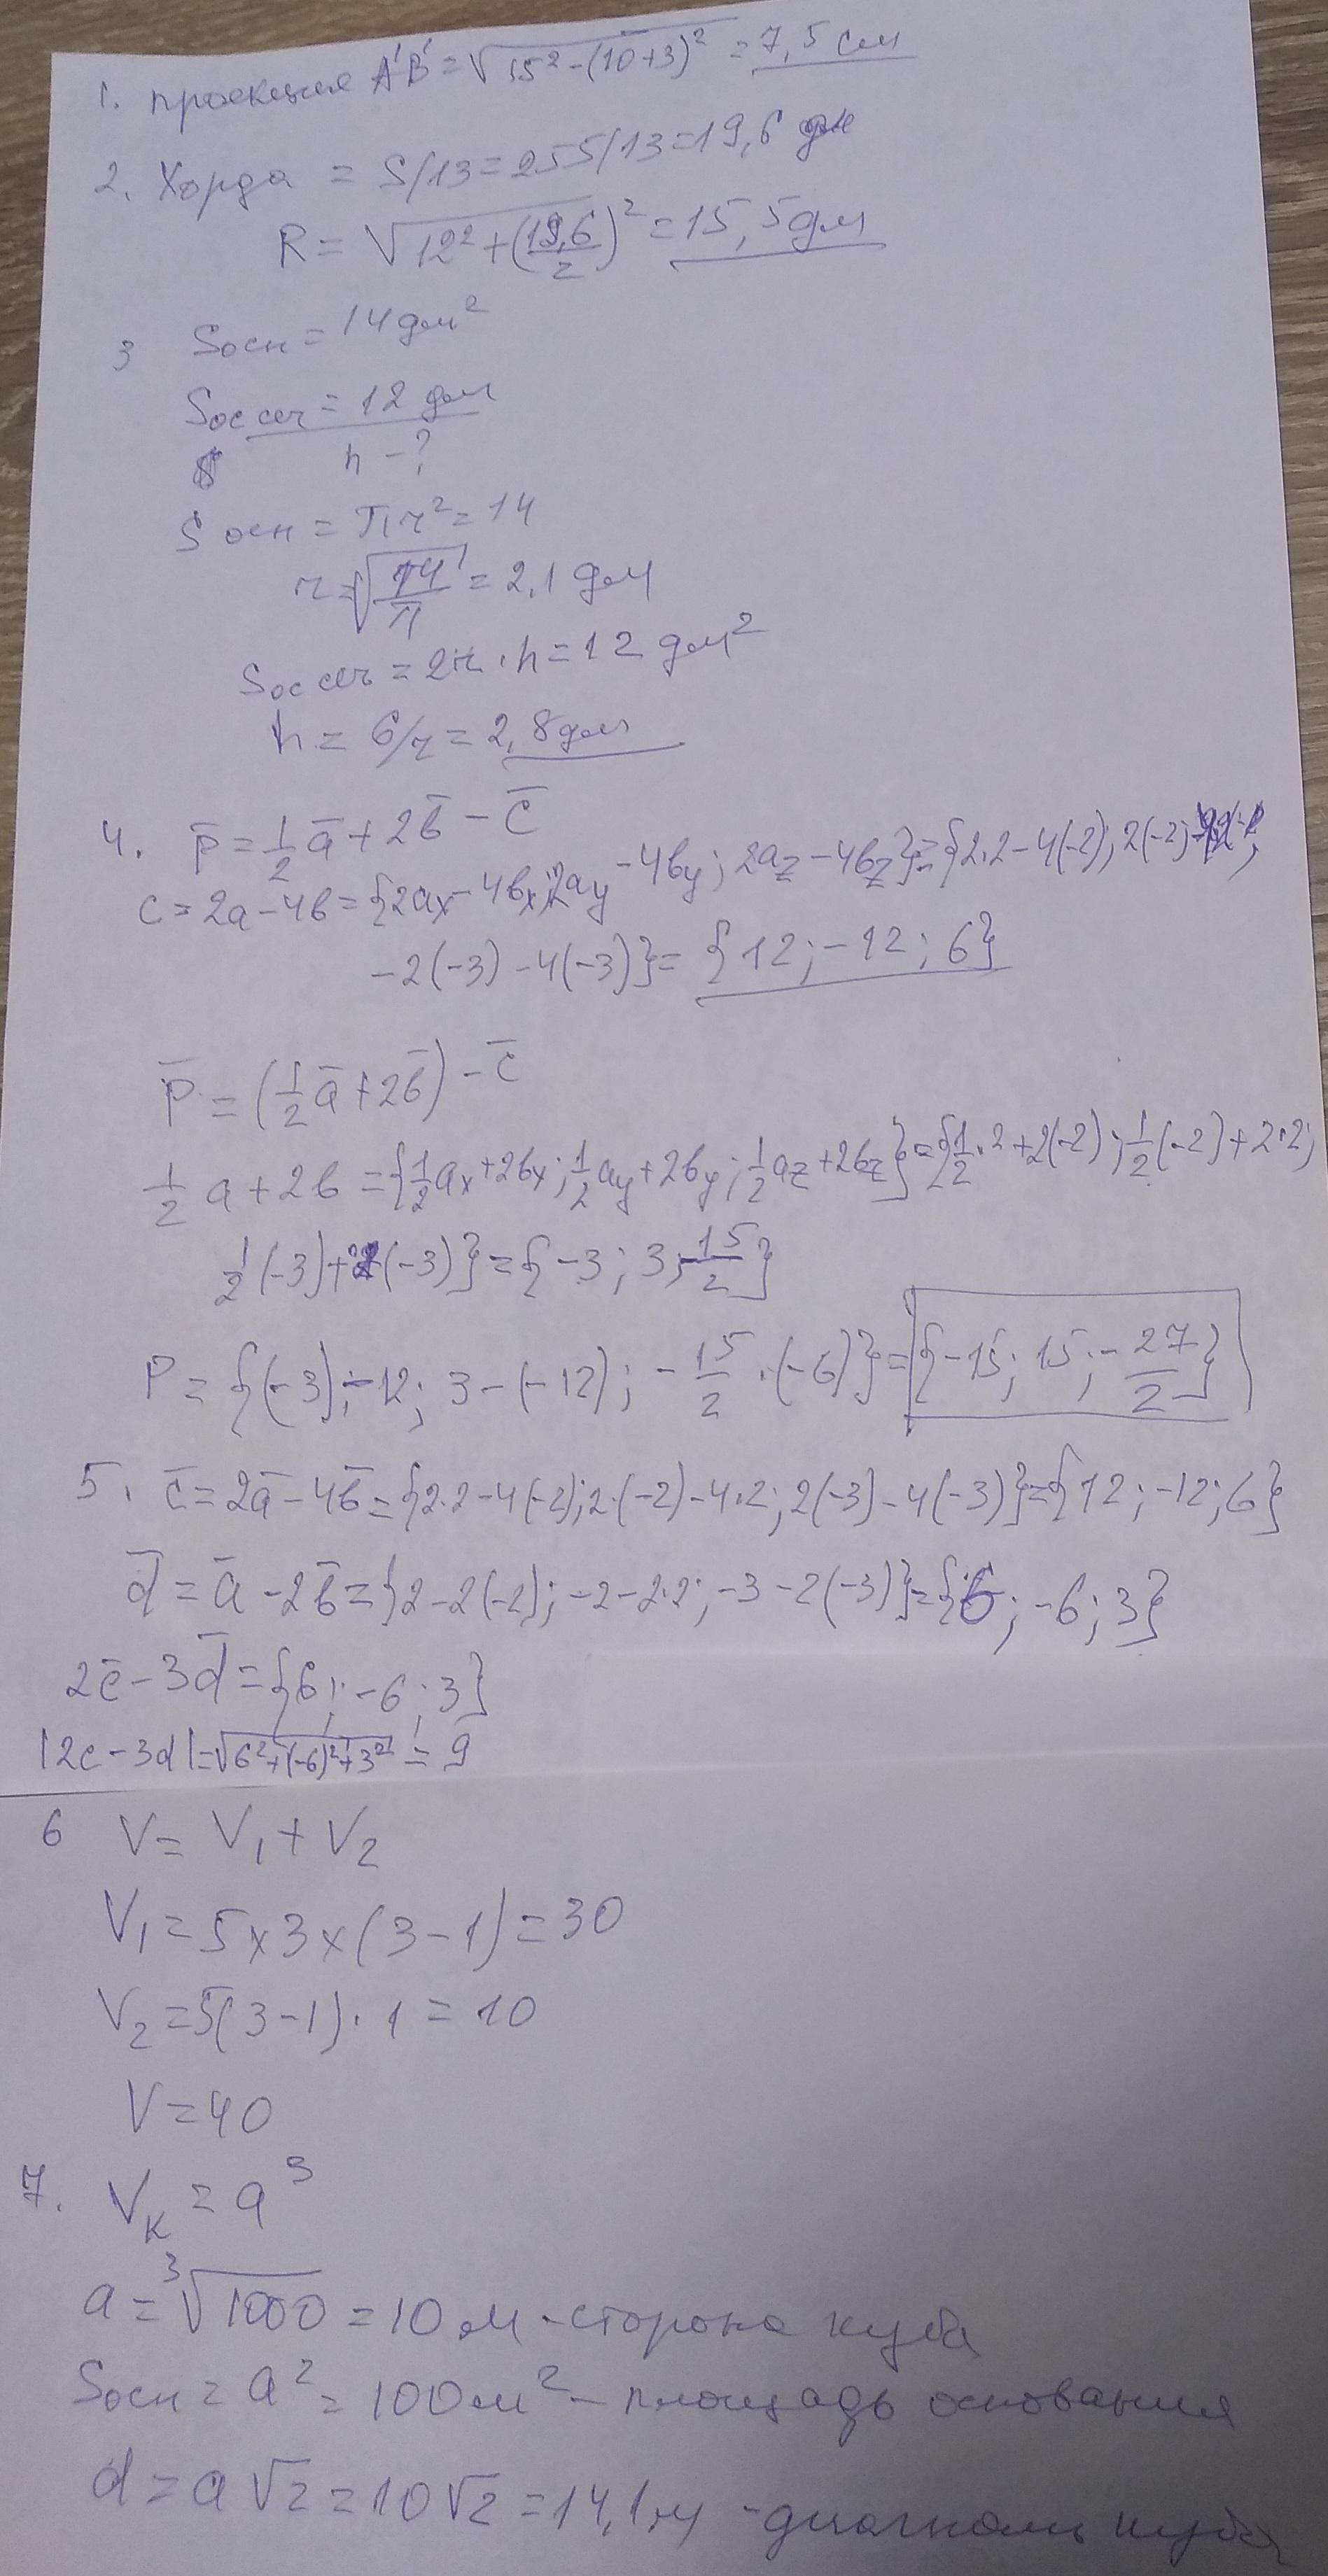 1. проекция A'B' = √15² - (10+3)² = 7,5 см
2. Хорда = S/13 = 255/13 = 19,6 дм
R = √12² + (19,6/2)² = 15,5 дм
3 Sосн = 14 дм²
Sос сеч = 12 дм
h - ?
S осн = πr² = 14
r = √14/π = 2,1 дм
Sос сеч = 2r · h = 12 дм²
h = 6/r = 2,8 дм
4. p̄ = 1/2 ā + 2b̄ - c̄
c = 2a - 4b = {2ax - 4bx; 2ay - 4by; 2az - 4bz} = {2·2 - 4(-2); 2(-2);
-2(-3) - 4(-3)} = {12; -12; 6}
p̄ = (1/2 ā + 2b̄) - c̄
1/2 a + 2b = {1/2 ax + 2bx; 1/2 ay + 2by; 1/2 az + 2bz} = {1/2 · 2 + 2(-2); 1/2 (-2) + 2·2;
1/2 (-3) + 2(-3)} = {-3; 3; -15/2}
P = {(-3); -12; 3 - (-12); -15/2 · (-6)} = {-15; 15; -27/2}
5. c̄ = 2ā - 4b̄ = {2·2 - 4(-2); 2·(-2) - 4·2; 2(-3) - 4(-3)} = {12; -12; 6}
d̄ = ā - 2b̄ = {2 - 2(-2); -2 - 2·2; -3 - 2(-3)} = {6; -6; 3}
2c̄ - 3d̄ = {6; -6; 3}
|2c - 3d| = √6² + (-6)² + 3² = 9
6 V = V₁ + V₂
V₁ = 5 x 3 x (3 - 1) = 30
V₂ = 5(3 - 1) · 1 = 10
V = 40
7. Vк = a³
a = ³√1000 = 10 м - сторона куба
Sосн = a² = 100 м² - площадь основания
d = a√2 = 10√2 = 14,1 м - диагональ куба